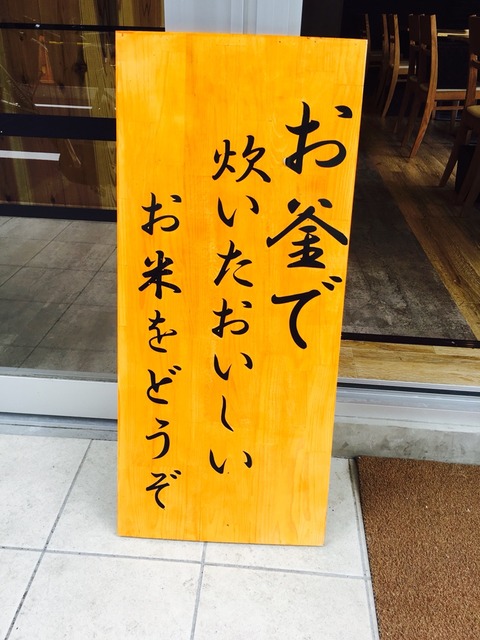 お釜で
炊いたおいしい
お米をどうぞ